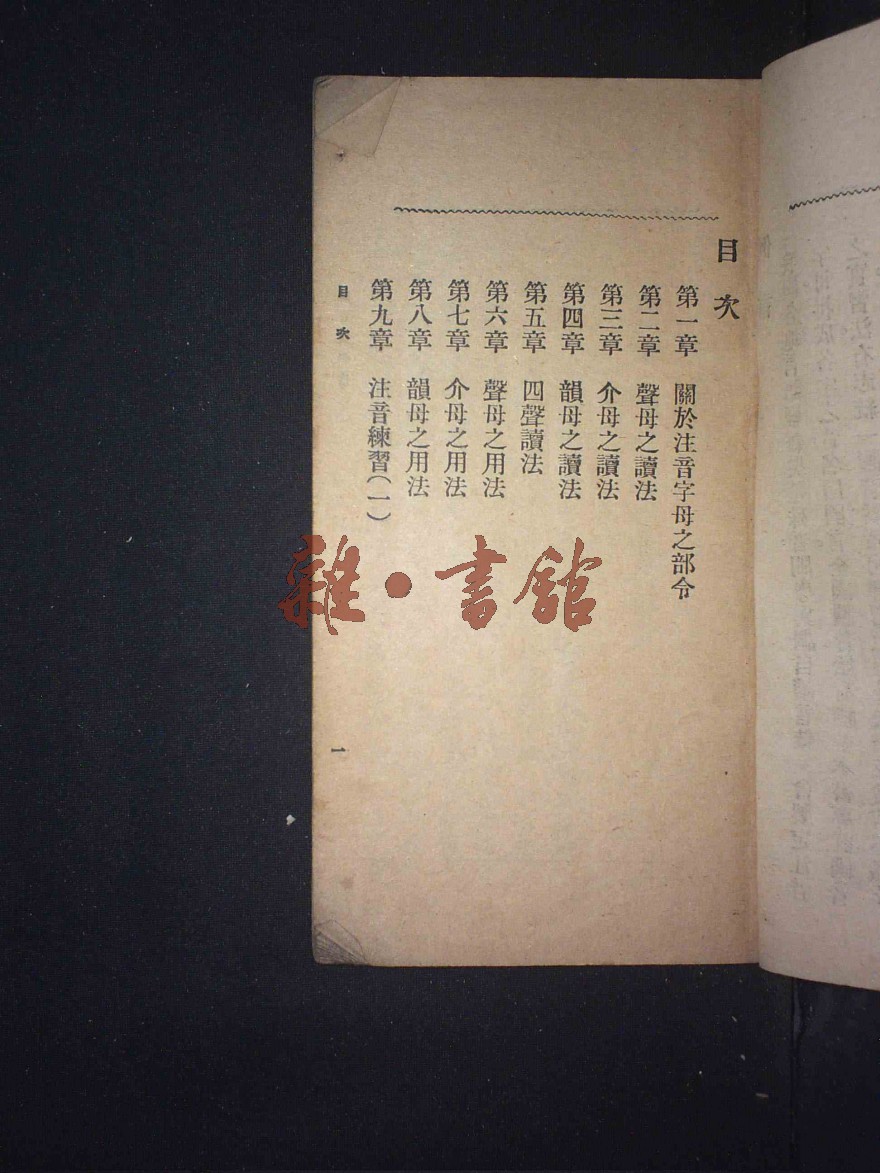 目次
第一章 關於注音字母之部令
第二章 聲母之讀法
第三章 介母之讀法
第四章 韻母之讀法
第五章 四聲讀法
第六章 聲母之用法
第七章 介母之用法
第八章 韻母之用法
第九章 注音練習(一)
目次
一
雜·書館